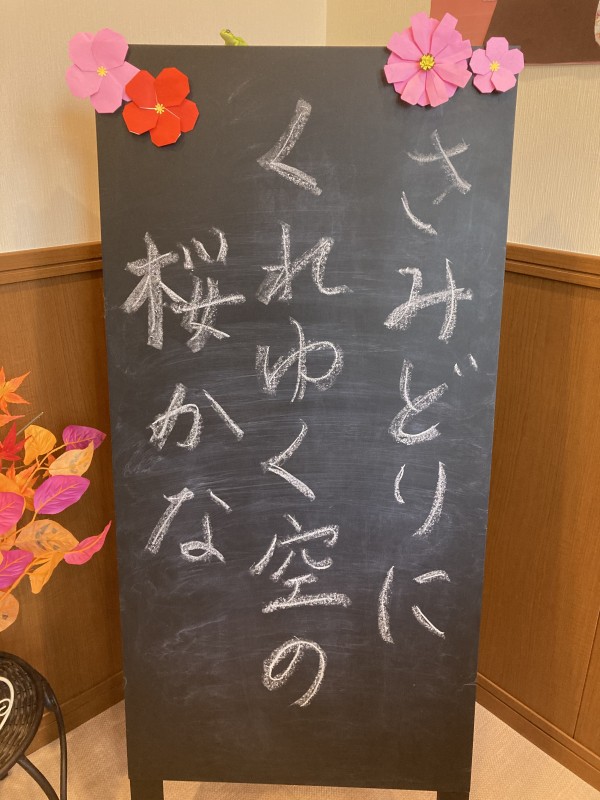 さみどりに
くれゆく空の
桜かな